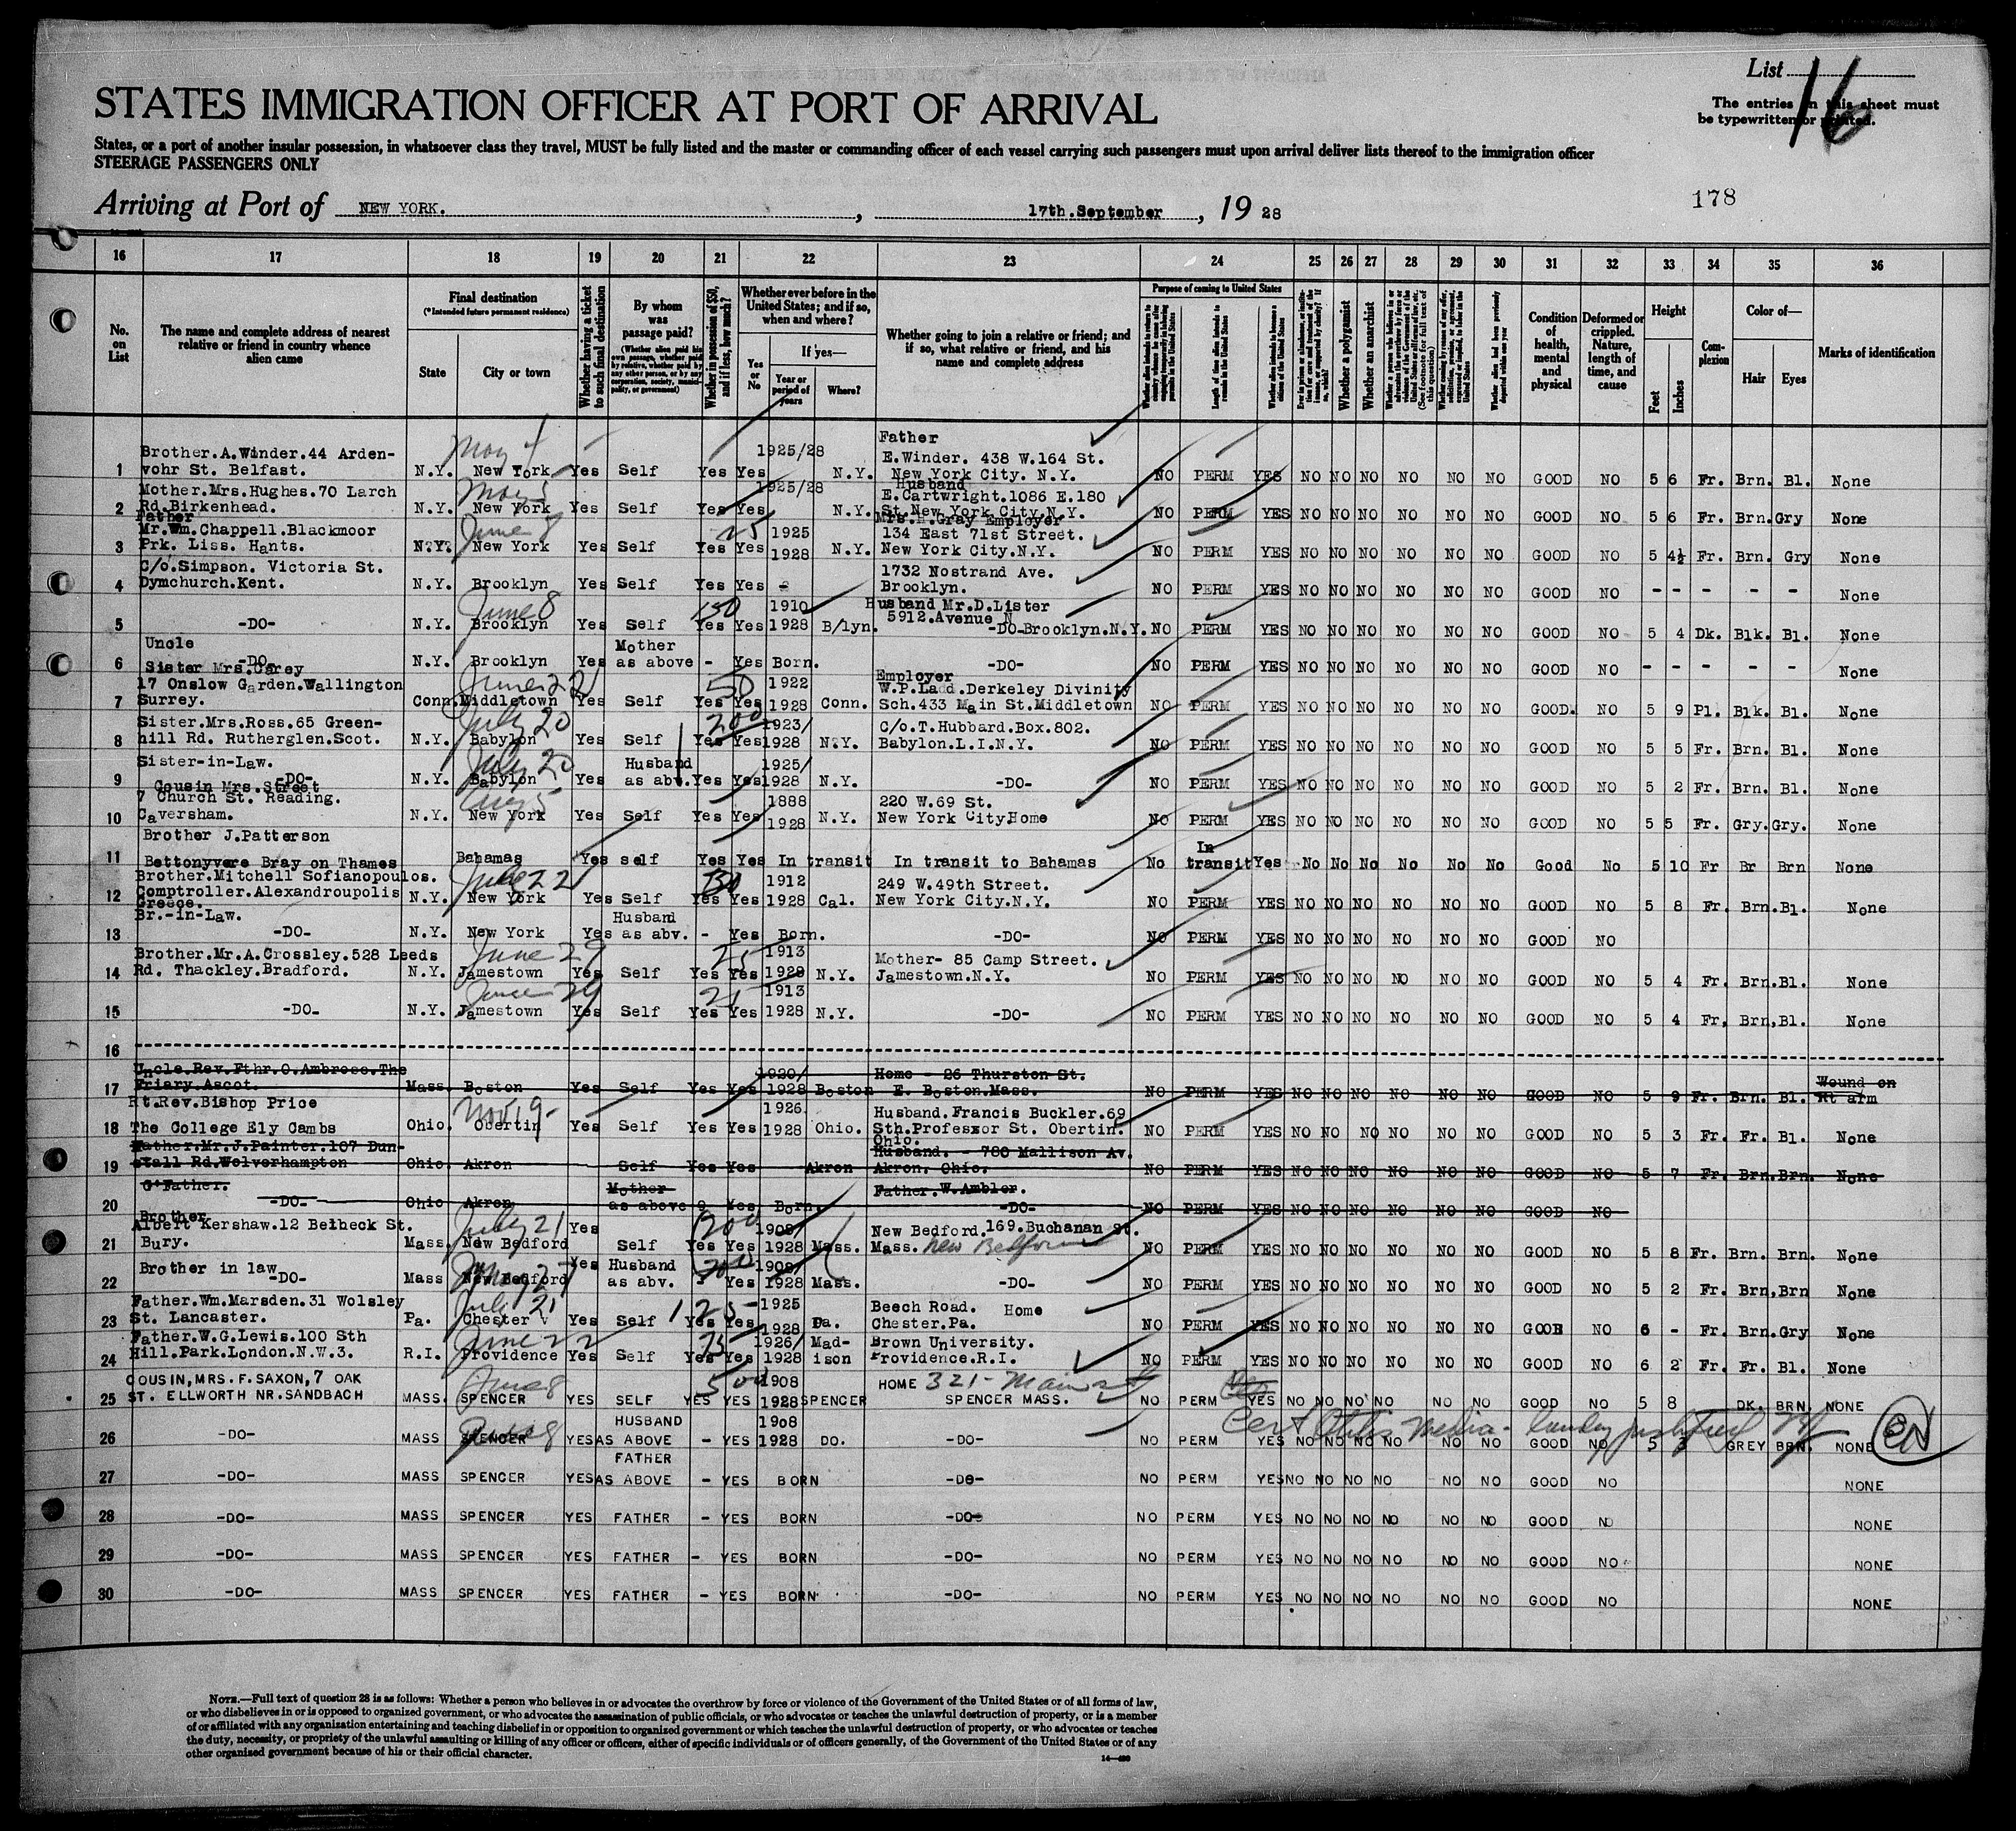 List 16
The entries on this sheet must
be typewritten or printed.
STATES IMMIGRATION OFFICER AT PORT OF ARRIVAL
States, or a port of another insular possession, in whatsoever class they travel, MUST be fully listed and the master or commanding officer of each vessel carrying such passengers must upon arrival deliver lists thereof to the immigration officer
STEERAGE PASSENGERS ONLY
178
Arriving at Port of NEW YORK. , 17th.September , 19 28
16 17 18 19 20 21 22 23 24 25 26 27 28 29 30 31 32 33 34 35 36
No. on List
The name and complete address of nearest relative or friend in country whence alien came
Final destination
(*Intended future permanent residence)
State
City or town
Whether having a ticket to such final destination
By whom was passage paid?
(Whether alien paid his own passage, whether paid by relative, whether paid by any other person, or by any corporation, society, municipality, or government)
Whether in possession of $50, and if less, how much?
Whether ever before in the United States; and if so, when and where?
Yes or No
If yes—
Year or period of years
Where?
Whether going to join a relative or friend; and if so, what relative or friend, and his name and complete address
Purpose of coming to United States
Length of time alien intends to remain in the United States
Whether alien intends to become a citizen of the United States
Whether a polygamist
Whether an anarchist
Condition of health, mental and physical
Deformed or crippled. Nature, length of time, and cause
Height
Feet
Inches
Complexion
Color of—
Hair
Eyes
Marks of identification
May 4
1 Brother.A.Winder.44 Ardenvohr St. Belfast. N.Y. New York Yes Self Yes Yes 1925/28 N.Y. Father E.Winder. 438 W.164 St. New York City. N.Y. NO PERM YES NO NO NO NO NO NO GOOD NO 5 6 Fr. Brn. Bl. None
May 5
2 Mother.Mrs.Hughes.70 Larch Rd.Birkenhead. N.Y. New York Yes Self Yes Yes 1925/28 N.Y. Husband E.Cartwright.1086 E.180 St.New York City.N.Y. NO PERM YES NO NO NO NO NO NO GOOD NO 5 6 Fr. Brn. Gry None
June 8 25
3 Father Mr.Wm.Chappell.Blackmoor Prk. Liss. Hants. N.Y. New York Yes Self Yes Yes 1925 1928 N.Y. Mrs.H.Gray Employer 134 East 71st Street. New York City.N.Y. NO PERM YES NO NO NO NO NO NO GOOD NO 5 4½ Fr. Brn. Gry None
4 C/o.Simpson. Victoria St. Dymchurch.Kent. N.Y. Brooklyn Yes Self Yes Yes - 1732 Nostrand Ave. Brooklyn. NO PERM YES NO NO NO NO NO NO GOOD NO - - - - - None
June 8 150
5 -DO- N.Y. Brooklyn Yes Self Yes Yes 1910 1928 B/lyn. Husband Mr.D.Lister 5912.Avenue N -DO-Brooklyn.N.Y. NO PERM YES NO NO NO NO NO NO GOOD NO 5 4 Dk. Blk. Bl. None
6 Uncle -DO- N.Y. Brooklyn Yes Mother as above - Yes Born. -DO- NO PERM YES NO NO NO NO NO NO GOOD NO - - - - - None
June 22 50
7 Sister Mrs.Carey 17 Onslow Garden.Wallington Surrey. Conn. Middletown Yes Self Yes Yes 1922 1928 Conn. Employer W.P.Ladd.Derkeley Divinity Sch.433 Main St.Middletown NO PERM YES NO NO NO NO NO NO GOOD. NO 5 9 Pl. Blk. Bl. None
July 20 200
8 Sister.Mrs.Ross.65 Greenhill Rd. Rutherglen.Scot. N.Y. Babylon Yes Self Yes Yes 1923/ 1928 N.Y. C/o.T.Hubbard.Box.802. Babylon.L.I.N.Y. NO PERM YES NO NO NO NO NO NO GOOD NO 5 5 Fr. Brn. Bl. None
July 20
9 Sister-in-Law. -DO- N.Y. Babylon Yes Husband as abv. Yes Yes 1925/ 1928 N.Y. -DO- NO PERM YES NO NO NO NO NO NO GOOD NO 5 2 Fr. Brn. Bl. None
10 Cousin Mrs.Street 7 Church St. Reading. Caversham. N.Y. New York Yes Self Yes Yes 1888 1928 N.Y. 220 W.69 St. New York City.Home NO PERM YES NO NO NO NO NO NO GOOD NO 5 5 Fr. Gry. Gry. None
11 Brother J.Patterson Bettonyvere Bray on Thames Bahamas Yes self Yes Yes In transit In transit to Bahamas No In transit Yes No No No No No No Good No 5 10 Fr Br Brn None
June 22
12 Brother.Mitchell Sofianopoulos. Comptroller.Alexandroupolis Greece. N.Y. New York Yes Self Yes Yes 1912 1928 Cal. 249 W.49th Street. New York City.N.Y. NO PERM YES NO NO NO NO NO NO GOOD NO 5 8 Fr. Brn. Bl. None
13 Br.-in-Law. -DO- N.Y. New York Yes Husband as abv. - Yes Born. -DO- NO PERM YES NO NO NO NO NO NO GOOD NO
June 29 25
14 Brother.Mr.A.Crossley.528 Leeds Rd. Thackley.Bradford. N.Y. Jamestown Yes Self Yes Yes 1913 1928 N.Y. Mother- 85 Camp Street. Jamestown.N.Y. NO PERM YES NO NO NO NO NO NO GOOD NO 5 4 Fr. Brn. Bl. None
June 29 25
15 -DO- N.Y. Jamestown Yes Self Yes Yes 1913 1928 N.Y. -DO- NO PERM YES NO NO NO NO NO NO GOOD NO 5 4 Fr. Brn. Bl. None
16
17 Uncle.Rev.Fthr.O.Ambrose.The Friary.Ascot. Mass. Boston Yes Self Yes Yes 1920/ 1928 Boston Home - 26 Thurston St. E. Boston.Mass. NO PERM YES NO NO NO NO NO NO GOOD NO 5 9 Fr. Brn. Bl. Wound on Rt arm
Nov 19-
18 Rt.Rev.Bishop Price The College Ely Cambs Ohio. Obertin Yes Self Yes Yes 1926 1928 Ohio. Husband.Francis Buckler.69 Sth.Professor St. Obertin. Ohio. NO PERM YES NO NO NO NO NO NO GOOD NO 5 3 Fr. Fr. Bl. None
19 Father.Mr.J.Painter.107 Dunstall Rd.Wolverhampton Ohio. Akron Self Yes Yes Akron Husband. - 780 Mallison Av. Akron. Ohio. NO PERM YES NO NO NO NO NO NO GOOD NO 5 7 Fr. Brn. Brn. None
20 G'Father. -DO- Ohio Akron Mother as above Yes Born. Father.W.Ambler. -DO- NO PERM YES NO NO NO NO NO NO GOOD NO
July 21 1200
21 Brother Albert Kershaw.12 Belbeck St. Bury. Mass. New Bedford Yes Self Yes Yes 1908/ 1928 Mass. New Bedford.169.Buchanan St. Mass. New Bedford NO PERM YES NO NO NO NO NO NO GOOD NO 5 8 Fr. Brn. Brn. None
22 Brother in law -DO- Mass New Bedford Yes Husband as abv. - Yes 1908/ 1928 Mass. -DO- NO PERM YES NO NO NO NO NO NO GOOD NO 5 2 Fr. Brn. Brn None
July 21 125-
23 Father.Wm.Marsden.31 Wolsley St. Lancaster. Pa. Chester Yes Self Yes Yes 1925 1928 Pa. Beech Road. Home Chester.Pa. NO PERM YES NO NO NO NO NO NO GOOD NO 6 - Fr. Brn. Gry None
June 22 75
24 Father.W.G.Lewis.100 Sth Hill.Park.London.N.W.3. R.I. Providence Yes Self Yes Yes 1926/ 1928 Madison Brown University. Providence.R.I. NO PERM YES NO NO NO NO NO NO GOOD NO 6 2 Fr. Fr. Bl. None
June 8 500
25 COUSIN, MRS. F. SAXON, 7 OAK ST. ELLWORTH NR. SANDBACH MASS. SPENCER YES SELF YES YES 1908 1928 SPENCER HOME 321-Main st SPENCER MASS. NO PERM YES NO NO NO NO NO NO GOOD NO 5 8 DK. BRN. NONE
June 8 Cert Otitis Media - landing justified
26 -DO- MASS SPENCER YES HUSBAND AS ABOVE - YES 1908 1928 DO. -DO- NO PERM YES NO NO NO NO NO NO GOOD NO 5 3 GREY BRN. NONE
27 -DO- MASS SPENCER YES FATHER AS ABOVE - YES BORN -DO- NO PERM YES NO NO NO NO NO NO GOOD NO NONE
28 -DO- MASS SPENCER YES FATHER - YES BORN -DO- NO PERM YES NO NO NO NO NO NO GOOD NO NONE
29 -DO- MASS SPENCER YES FATHER - YES BORN -DO- NO PERM YES NO NO NO NO NO NO GOOD NO NONE
30 -DO- MASS SPENCER YES FATHER - YES BORN -DO- NO PERM YES NO NO NO NO NO NO GOOD NO NONE
NOTE.—Full text of question 28 is as follows: Whether a person who believes in or advocates the overthrow by force or violence of the Government of the United States or of all forms of law,
or who disbelieves in or is opposed to organized government, or who advocates the assassination of public officials, or who advocates or teaches the unlawful destruction of property, or is a member
of or affiliated with any organization entertaining and teaching disbelief in or opposition to organized government or which teaches the unlawful destruction of property, or who advocates or teaches
the duty, necessity, or propriety of the unlawful assaulting or killing of any officer or officers, either of specific individuals or of officers generally, of the Government of the United States or of any
other organized government because of his or their official character.